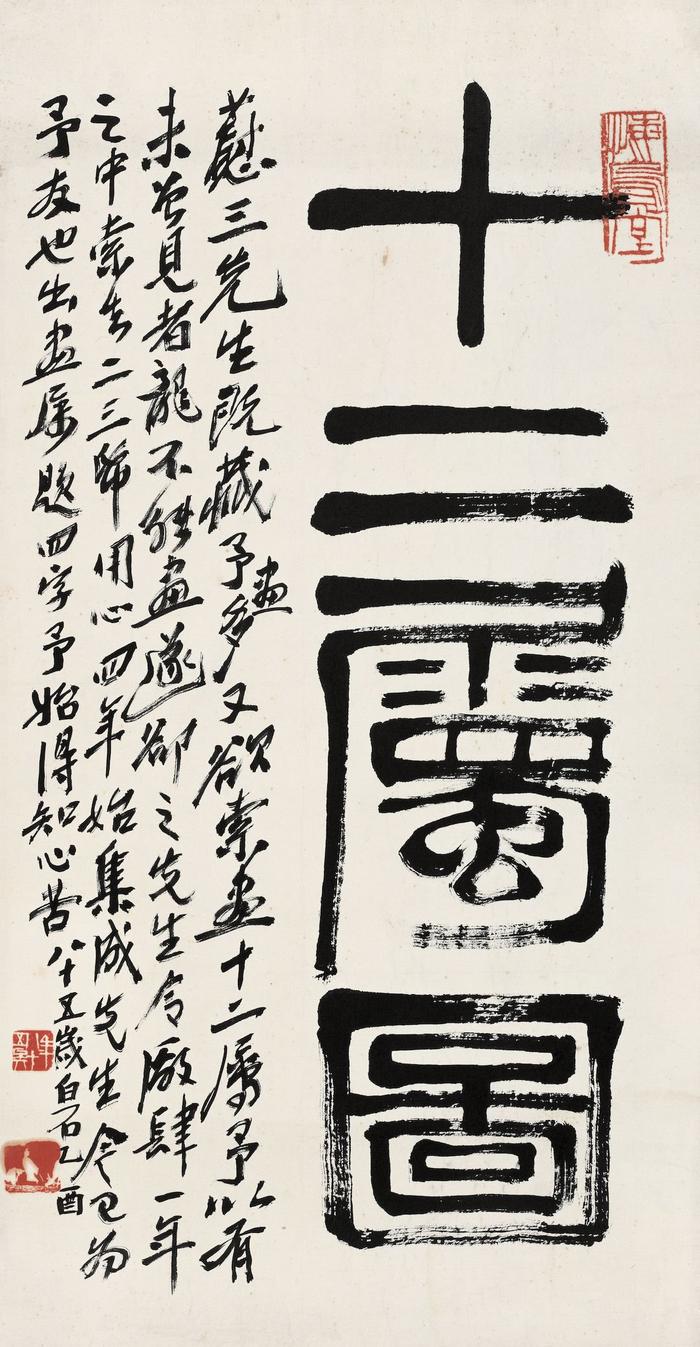 十二屬圖
三先生既藏予畫多又欲索畫十二屬予以有
未曾見者龍不能畫遂卻之先生令廠肆一年
之中索去二三幅用心四年始集成先生今已為
予友也出畫屬題四字予始得知心苦八十五歲白石乙酉
悔烏堂